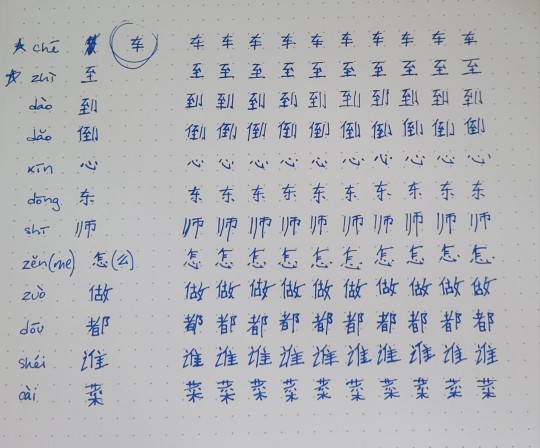 chē 车 车 车 车 车 车 车 车 车 车 车
zhì 至 至 至 至 至 至 至 至 至 至 至
dào 到 到 到 到 到 到 到 到 到 到 到
dǎo 倒 倒 倒 倒 倒 倒 倒 倒 倒 倒 倒
xīn 心 心 心 心 心 心 心 心 心 心 心
dōng 东 东 东 东 东 东 东 东 东 东 东
shī 师 师 师 师 师 师 师 师 师 师 师
zěn(me) 怎(么) 怎 怎 怎 怎 怎 怎 怎 怎 怎 怎
zuò 做 做 做 做 做 做 做 做 做 做 做
dōu 都 都 都 都 都 都 都 都 都 都 都
shéi 谁 谁 谁 谁 谁 谁 谁 谁 谁 谁 谁
cài 菜 菜 菜 菜 菜 菜 菜 菜 菜 菜 菜